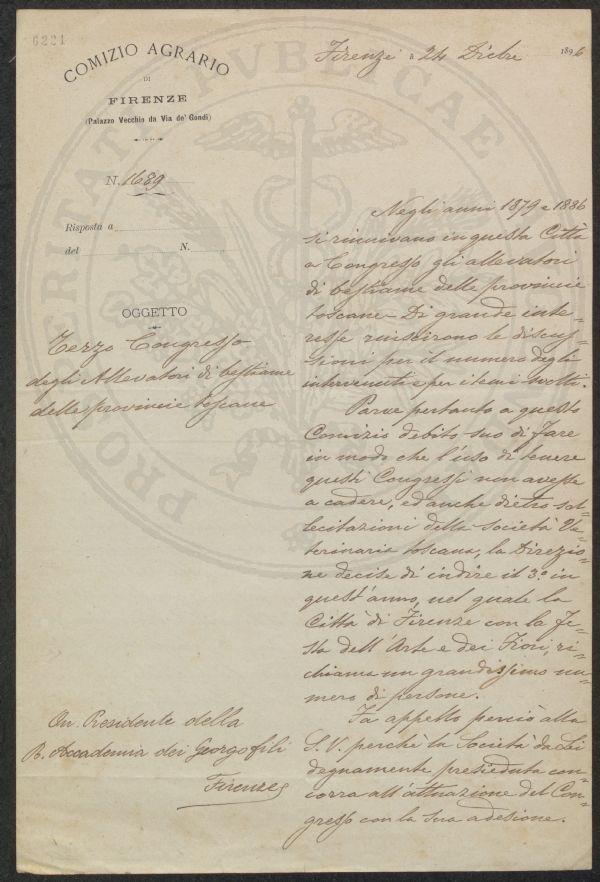 6221
COMIZIO AGRARIO
DI
FIRENZE
(Palazzo Vecchio da Via de' Gondi)
N. 1689
Risposta a
del N.
OGGETTO
Terzo Congresso
degli Allevatori di bestiame
delle provincie toscane
Firenze a 24 Dicbre 1896
Negli anni 1879 e 1886
si riunivano in questa Città
a Congresso gli allevatori
di bestiame delle provincie
toscane – Di grande inte=
resse riuscirono le discus=
sioni per il numero degli
intervenuti e per i temi svolti.
Parve pertanto a questo
Comizio debito suo di fare
in modo che l'uso di tenere
questi Congressi non avesse
a cadere, ed anche dietro sol=
lecitazioni della Società Ve=
terinaria toscana, la Direzio=
ne decise di indire il 3.o in
quest'anno, nel quale la
Città di Firenze con la Fe=
sta dell'Arte e dei Fiori, ri=
chiama un grandissimo nu=
mero di persone.
Fa appello perciò alla
S. V. perchè la Società da Lei
degnamente presieduta con=
corra all'attuazione del Con=
gresso con la sua adesione.
On. Presidente della
R. Accademia dei Georgofili
Firenze
PROSPERITATI PUBLICAE